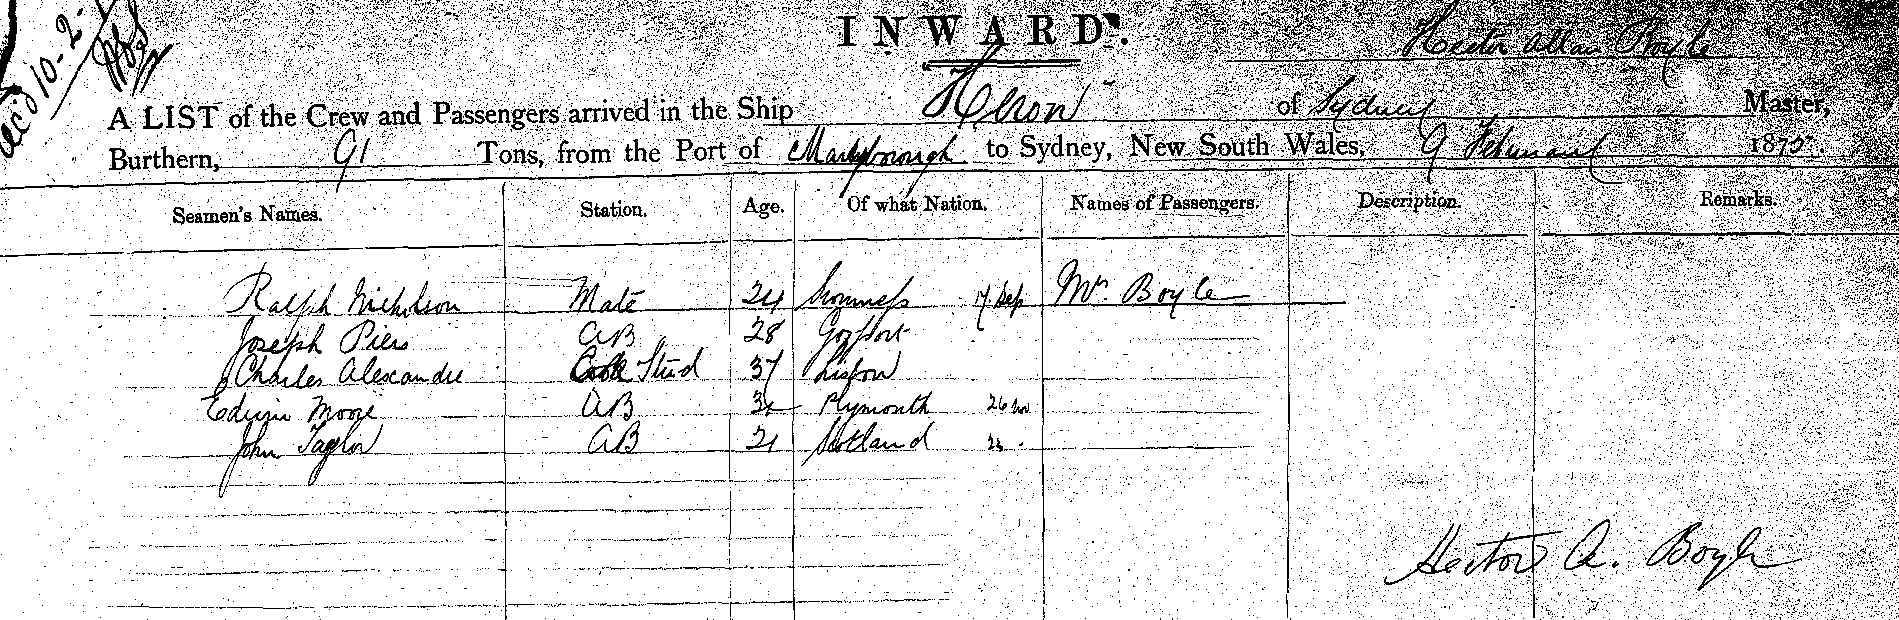 Rec'd 10-2-
INWARD.
Hector Allan Boyle
A LIST of the Crew and Passengers arrived in the Ship Heron of Sydney Master,
Burthern, 91 Tons, from the Port of Maryborough to Sydney, New South Wales, 9 February 187
Seamen's Names. Station. Age. Of what Nation. Names of Passengers. Description. Remarks.
Ralph Nicholson Mate 24 17 Sep Mr. Boyle
Joseph Piers AB 28 Gosport
Charles Alexander Cook Stud 37 Lisbon
Edwin Moore AB Plymouth 26 Nov
John Taylor AB 21 Scotland
Hector A. Boyle